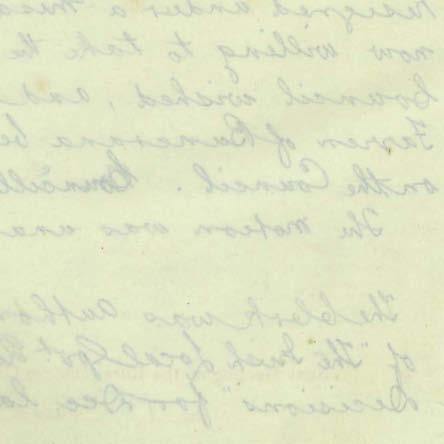 resigned under a
now willing to take the
Council wished, and
Farren of be
on the Council. Councill
The motion was and
The Clerk was author
of "The Irish Local Govt
Decisions" for Dec. ha